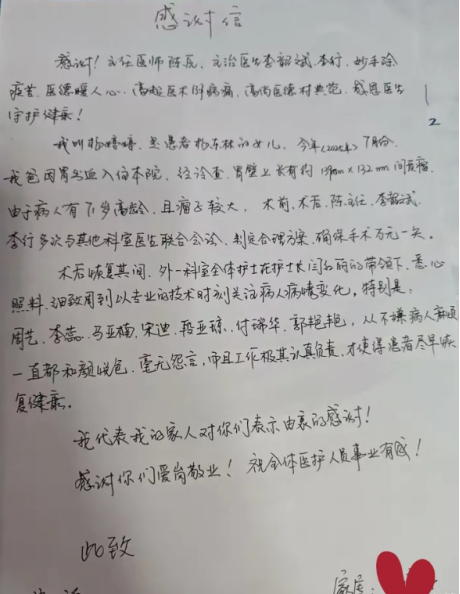 感谢信
感谢！主任医师陈瓦，主治医生李韶斌、李行，妙手除
疾苦，医德暖人心，高超医术除病痛，高尚医德树典范，感恩医生
守护健康！
1
2
我叫杨婷婷，是患者杨东林的女儿，今年（2025年）7月份，
我爸因胃出血入住本院，经诊查，胃壁上长有约139mm×132mm间质瘤，
由于病人有71岁高龄，且瘤子较大，术前、术后，陈主任、李韶斌、
李行多次与其他科室医生联合会诊，制定合理方案，确保手术万无一失。
术后恢复其间，外一科室全体护士在护士长闫的带领下，悉心
照料，细致周到以专业的技术时刻关注病人病情变化，特别是：
周艺、李蕊、马亚楠、宋迪、段亚琼、付瑞华、郭艳艳，从不嫌病人麻烦
一直都和颜悦色，毫无怨言，而且工作极其认真负责，才使得患者尽早恢
复健康。
我代表我的家人对你们表示由衷的感谢！
感谢你们爱岗敬业！祝全体医护人员事业有成！
此致
家属：